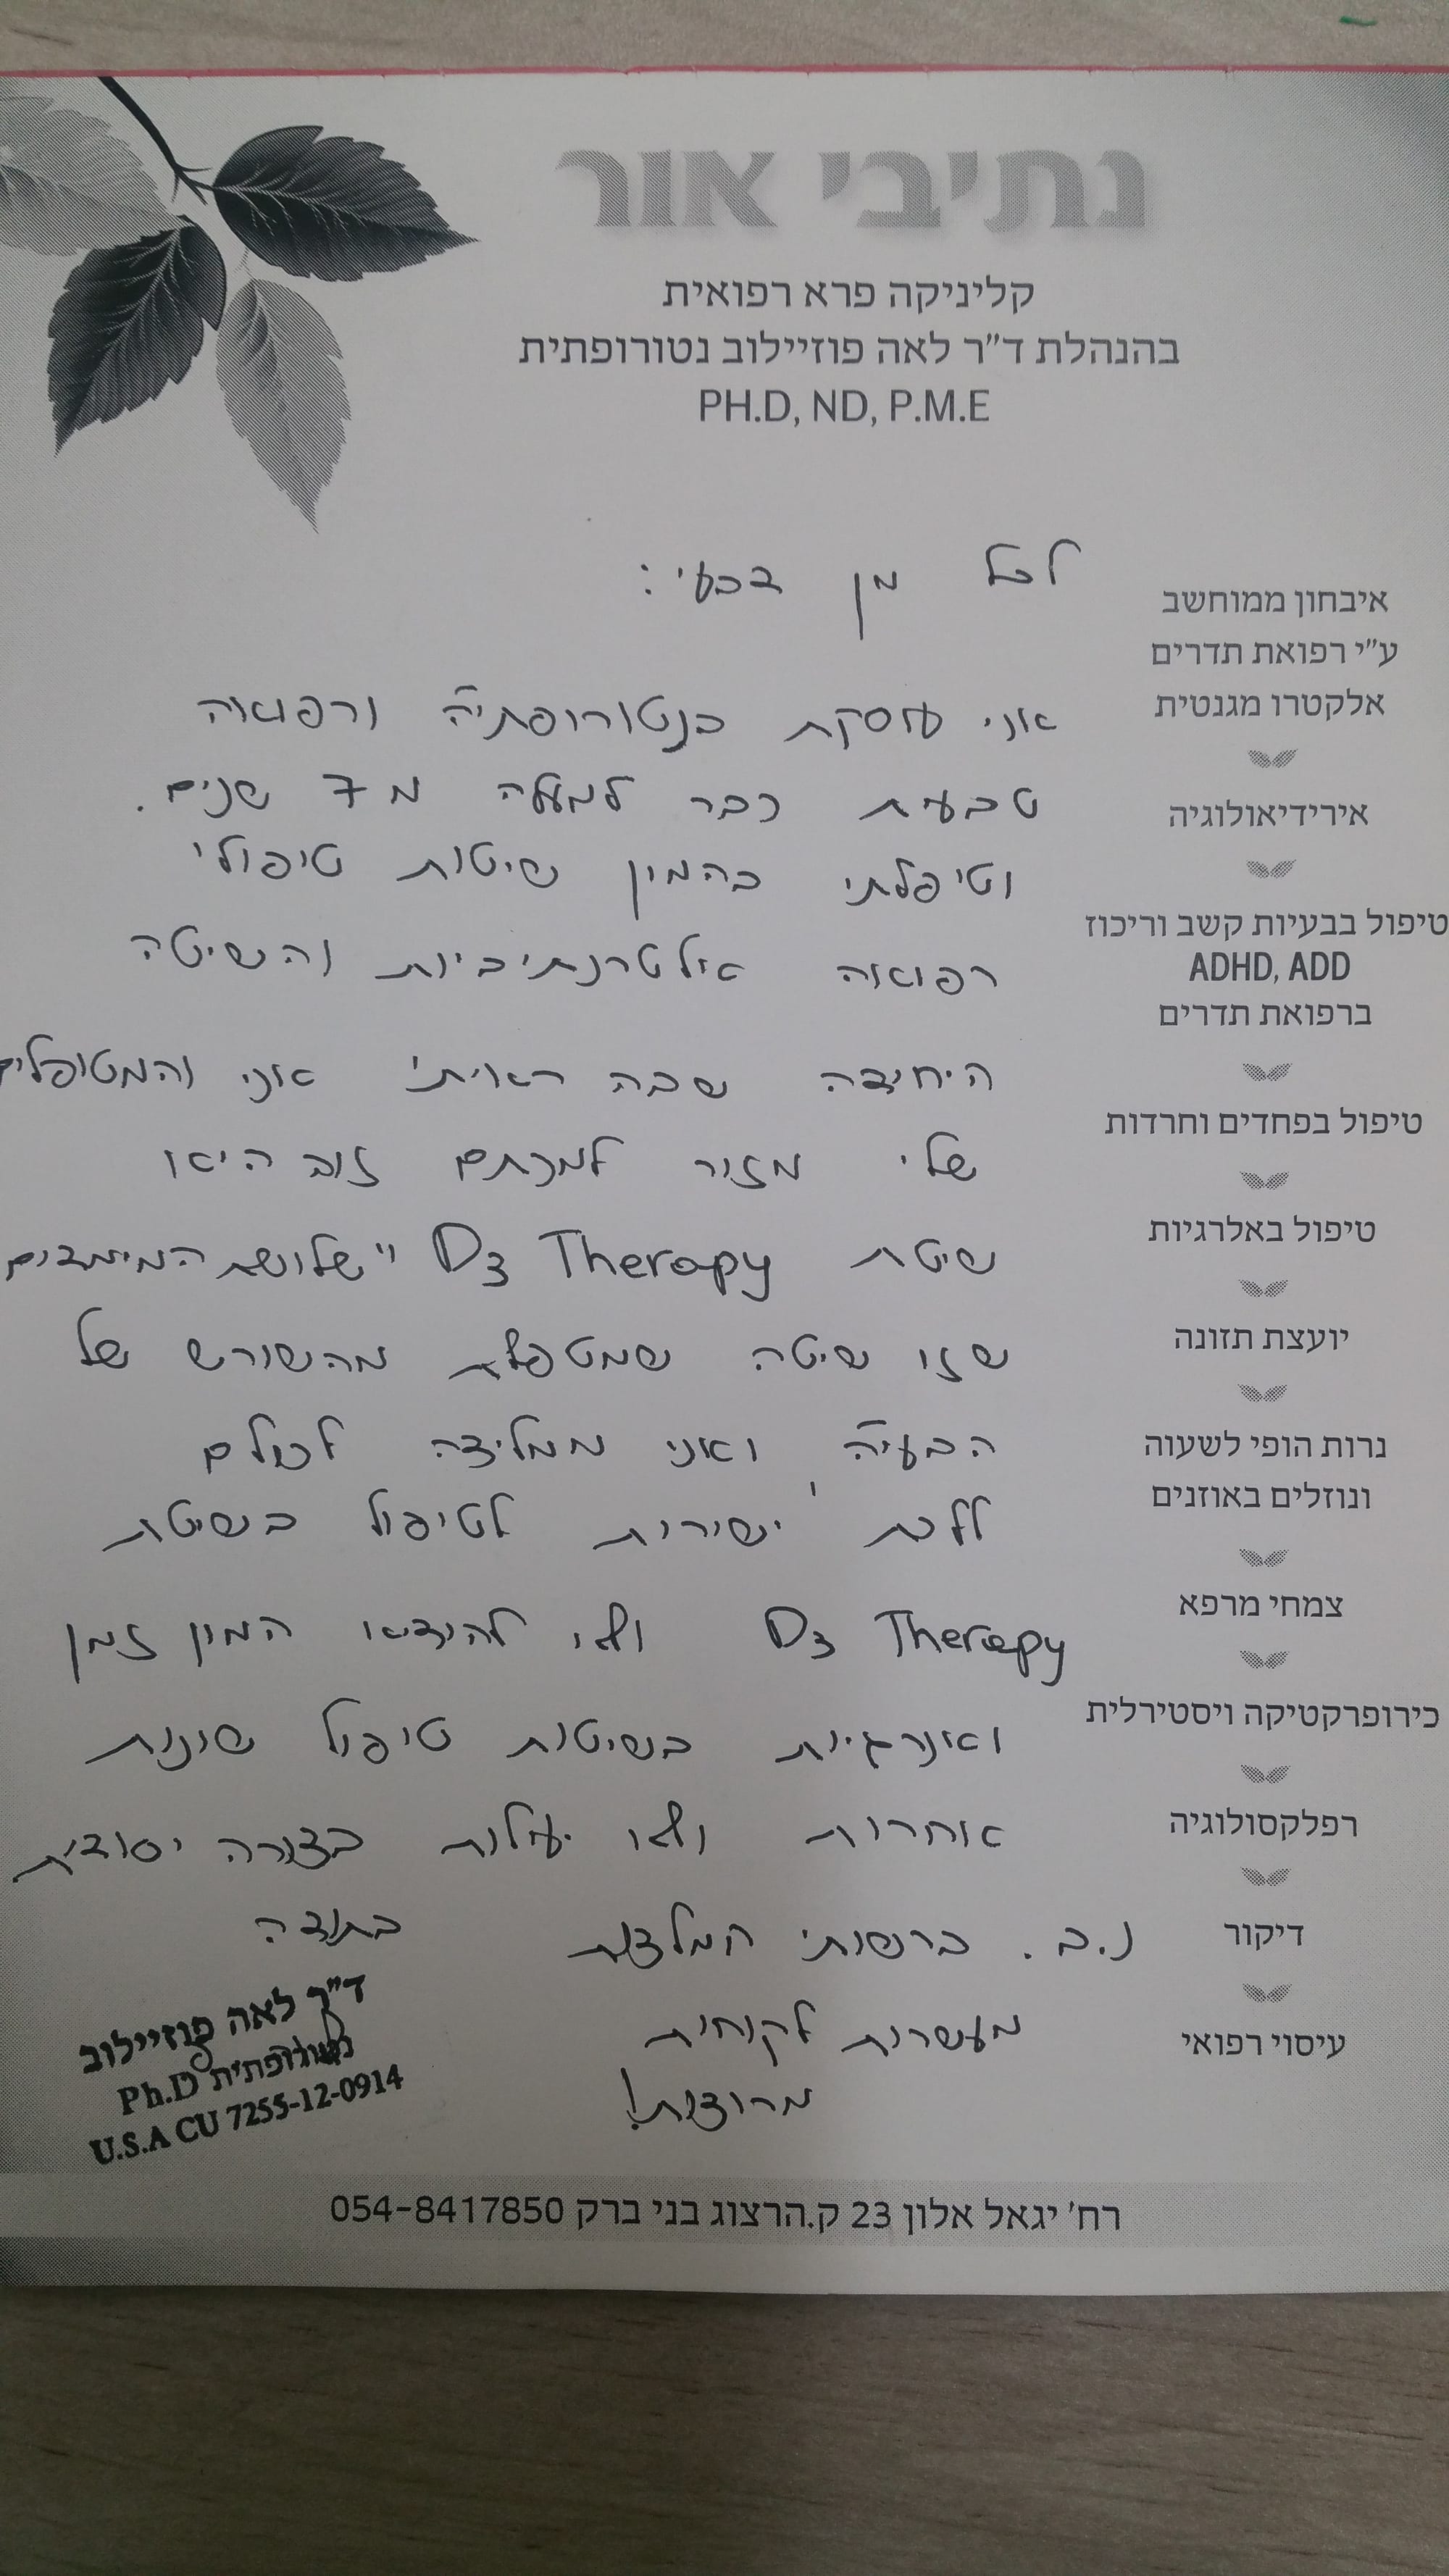 נתיבי אור
קליניקה פרא רפואית
בהנהלת ד"ר לאה פוזיילוב נטורופתית
PH.D, ND, P.M.E
לכל מן דבעי:
אני עוסקת בנטורופתיה ורפואה
טבעית כבר למעלה מ 7 שנים.
וטיפלתי בהמון שיטות טיפולי
רפואה אלטרנתיביות והשיטה
היחידה שבה ראיתי אני והמטופלים
שלי מזור למכתם זוב היא
שיטת D3 Therapy "שלושת המימדים
שזו שיטה שמטפלת מהשורש של
הבעיה ואני ממליצה לכולם
ללכת ישירות לטיפול בשיטת
D3 Therapy ולא להוציא המון זמן
ואנרגיות בשיטות טיפול שונות
אחרות ולא יעילות בצורה יסודית
בתודה
נ.ב. ברשותי המלצות
מעשרות לקוחות
מרוצות!
ד"ר לאה פוזיילוב
נטורופתית Ph.D
U.S.A CU 7255-12-0914
איבחון ממוחשב
ע"י רפואת תדרים
אלקטרו מגנטית
אירידיאולוגיה
טיפול בבעיות קשב וריכוז
ADHD, ADD
ברפואת תדרים
טיפול בפחדים וחרדות
טיפול באלרגיות
יועצת תזונה
נרות הופי לשעוה
ונוזלים באוזנים
צמחי מרפא
כירופרקטיקה ויסטירלית
רפלקסולוגיה
דיקור
עיסוי רפואי
רח' יגאל אלון 23 ק.הרצוג בני ברק 054-8417850